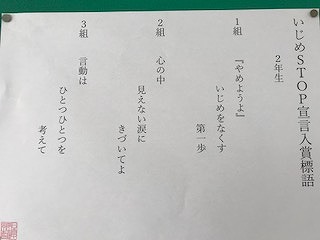 いじめSTOP宣言入賞標語
2年生
1組 『やめようよ』
いじめをなくす
第一歩
2組 心の中
見えない涙に
きづいてよ
3組 言動は
ひとつひとつを
考えて